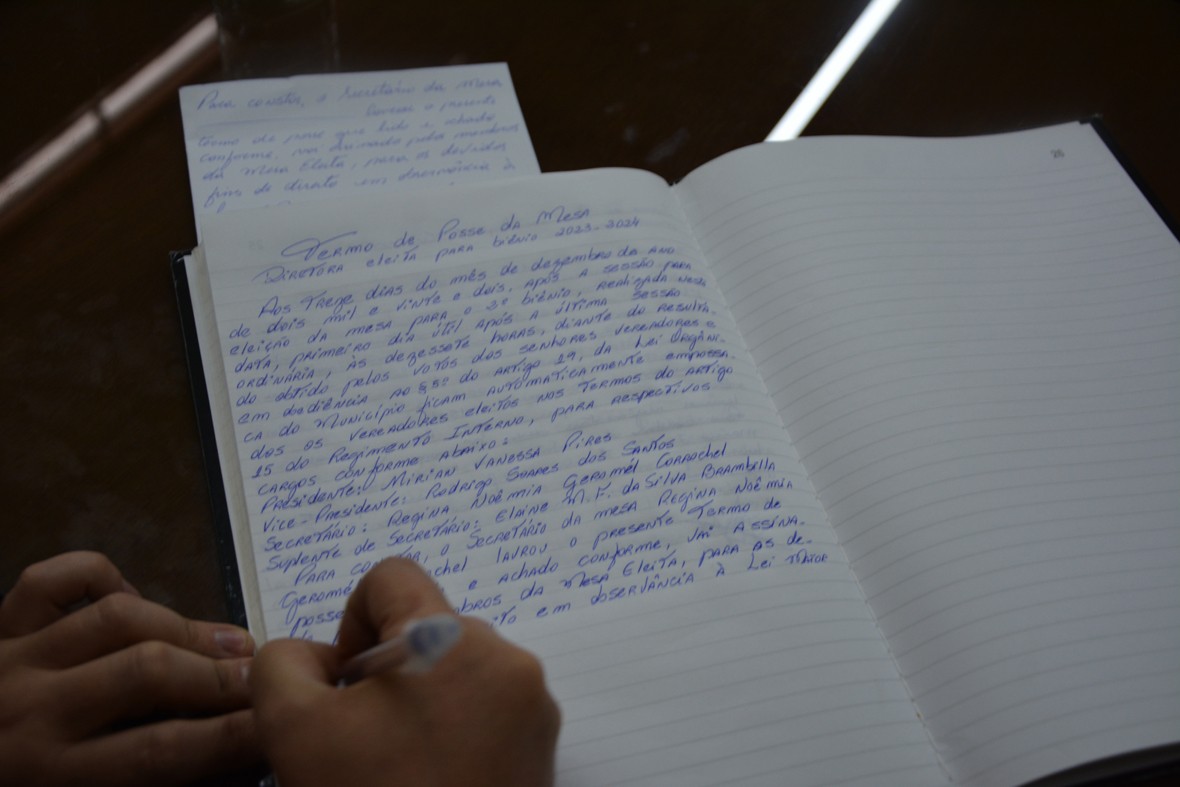 Para constar, o Secretário da Mesa
lavrou o presente
termo de posse que lido e achado
conforme, vai assinado pelos membros
da Mesa Eleita, para os devidos
fins de direito em observância à
26
Termo de Posse da Mesa
Diretora eleita para biênio 2023-2024
Aos treze dias do mês de dezembro do ano
de dois mil e vinte e dois, após a sessão para
eleição da mesa para o 2º biênio, realizada nesta
data, primeiro dia útil após a última sessão
ordinária, às dezessete horas, diante do resulta-
do obtido pelos votos dos senhores vereadores e
em obediência ao § 5º do artigo 19, da Lei Orgâni-
ca do Município ficam automaticamente empossa-
dos os vereadores eleitos nos termos do artigo
15 do Regimento Interno, para respectivos
cargos conforme abaixo:
Presidente: Mirian Vanessa Pires
Vice-Presidente: Rodrigo Soares dos Santos
Secretário: Regina Noêmia Geromél Corrochel
Suplente de Secretário: Elaine M. F. da Silva Brambilla
Para , o Secretário da mesa Regina Noêmia
Geromé chel lavrou o presente Termo de
posse e achado conforme, vai assina-
bros da Mesa Eleita, para as de-
ito em observância à Lei Maior